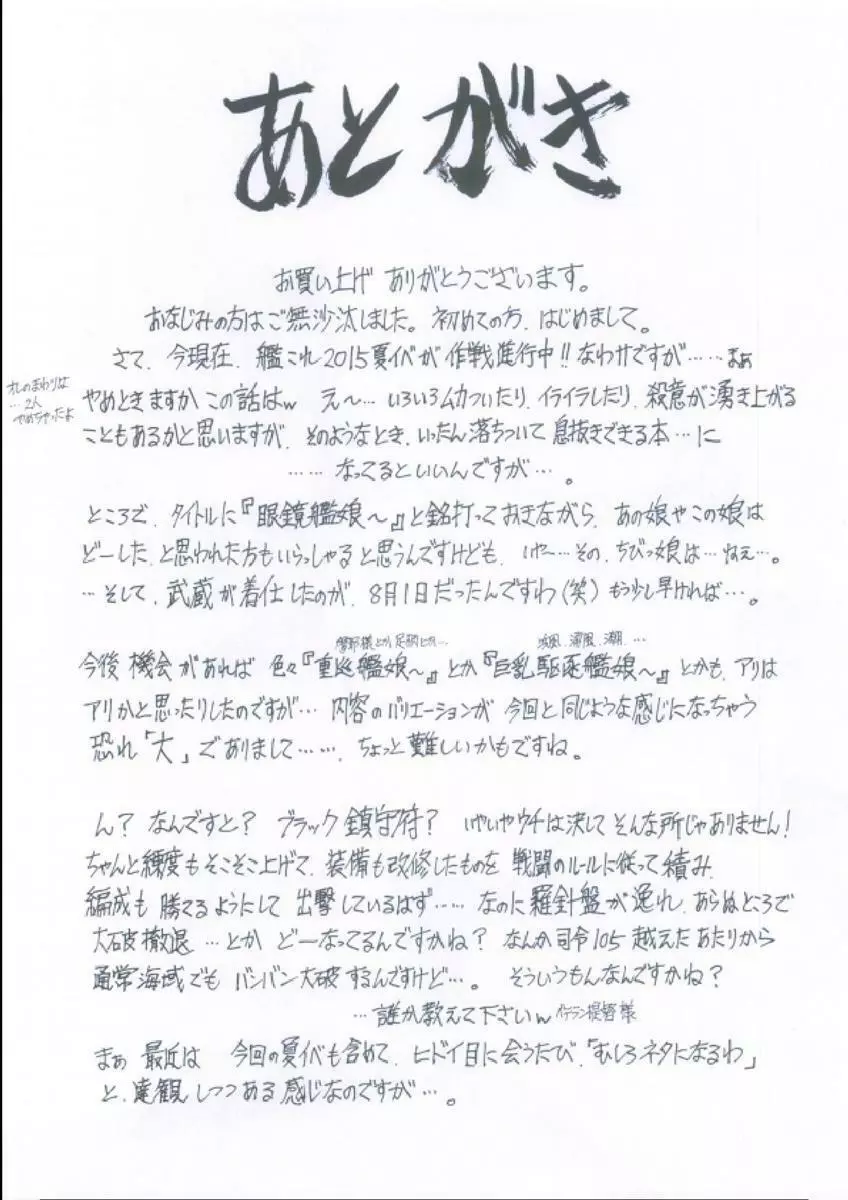 あとがき
お買い上げ ありがとうございます。
おなじみの方はご無沙汰しました。初めての方、はじめまして。
さて、今現在、艦これ2015夏イベが 作戦進行中!! なわけですが……まぁ
オレのまわりは
…2人
やめちゃったよ
やめときますか この話はw え〜… いろいろムカついたり、イライラしたり、殺意が湧き上がる
こともあるかと思いますが、そのようなとき、いったん落ちついて 息抜きできる本…に
……なってるといいんですが…。
ところで、タイトルに『眼鏡艦娘〜』と銘打っておきながら、あの娘やこの娘は
どーした、と思われた方もいらっしゃると思うんですけども、いやー…その、ちびっ娘は…ねぇ…。
…そして、武蔵が着任したのが、8月1日だったんですわ(笑) もう少し早ければ…。
摩耶様とか、足柄とか… 浜風、潮、…
今後 機会があれば 色々『重巡艦娘〜』とか『巨乳駆逐艦娘〜』とかも、アリは
アリかと思ったりしたのですが… 内容のバリエーションが 今回と同じような感じになっちゃう
恐れ「大」でありまして……、ちょっと難しいかもですね。
ん? なんですと? ブラック鎮守府? いやいやウチは決してそんな所じゃありません!
ちゃんと練度もそこそこ上げて、装備も改修したものを 戦闘のルールに従って積み、
編成も 勝てるようにして 出撃しているはず…… なのに羅針盤が逸れ、あらぬところで
大破撤退 …とか どーなってるんですかね? なんか司令105越えたあたりから
通常海域でも バンバン大破するんですけど…。 そういうもんなんですかね?
…誰か教えて下さいw イケラン提督様
まぁ 最近は 今回の夏イベも含めて、ヒドイ目に会うたび、「むしろネタになるわ」
と、達観しつつある感じなのですが…。